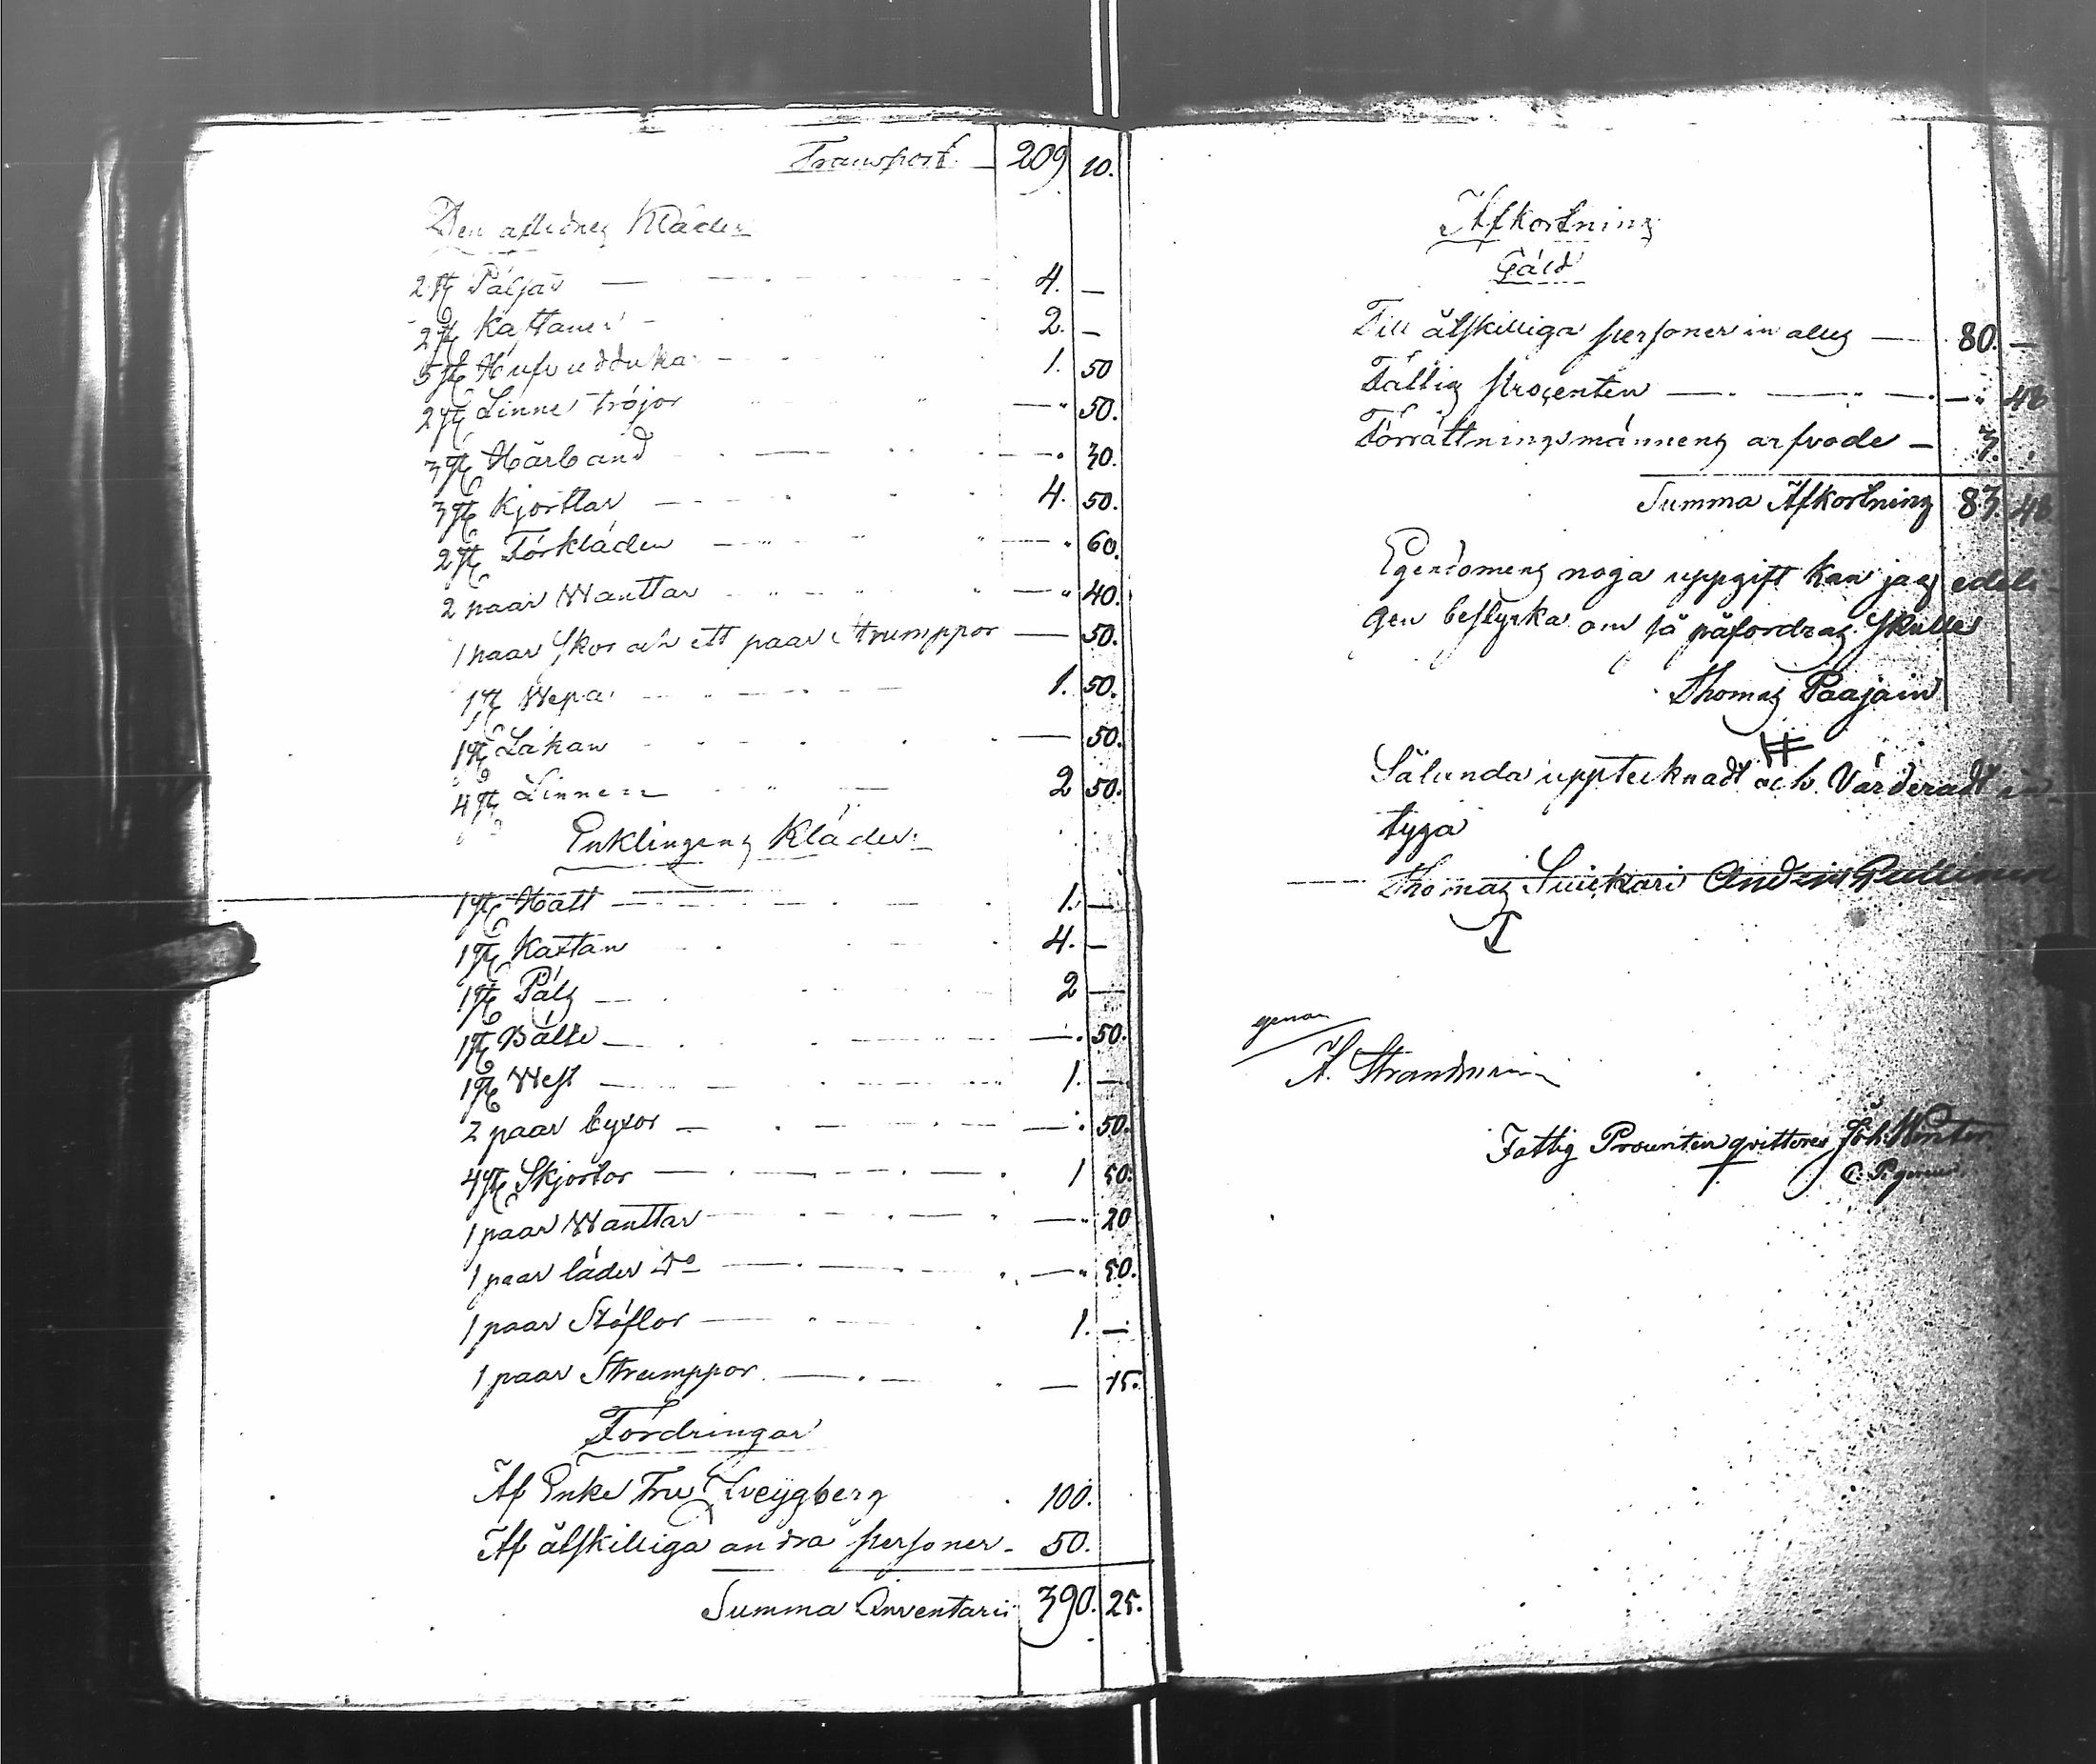 Transport. 209 10.
Den aflidnes Kläder
2 st Pälsar 4. —
2 st Kaftaner 2. —
5 st Hufvudduka 1. 50
2 st Linne tröjor — 50.
3 st Hårband — 30.
3 st Kjorttar 4. 50.
2 st Förkläden — 60.
2 paar Wanttar — 40.
1 paar Skor och ett paar Strumppor — 50.
1 st Wepa 1. 50.
1 st Lakan — 50.
4 st Linnen 2 50.
Enklingens Kläder
1 st Hatt 1. —
1 st Kaftan 4. —
1 st Päls 2 —
1 st Bälte — 50.
1 st West 1. —
2 paar byxor — 50.
4 st Skjortor 1 50.
1 paar Wanttar — 20
1 paar läder Do — 50.
1 paar Stöflor 1. —
1 paar Strumppor. — 15.
Fordringar
Af Enke Fru 100.
Af åtskilliga andra personer 50.
Summa Inventarii 390. 25.
Afkortning
Gäld
Till åtskilliga personer in alles 80. —
Fattig procenten — 48
Förrättningsmännens arfvode 3.
Summa Afkortning 83. 48
Egendomens noga uppgift kan jag edeli
gen bestyrka om så påfordras skulle
Thomas Paajain
Sålunda upptecknadt och Värderadt in-
tyga
Thomas Suikari Anders Pullinen
genom
A.
Fattig Procenten qvitteras Joh. Winter